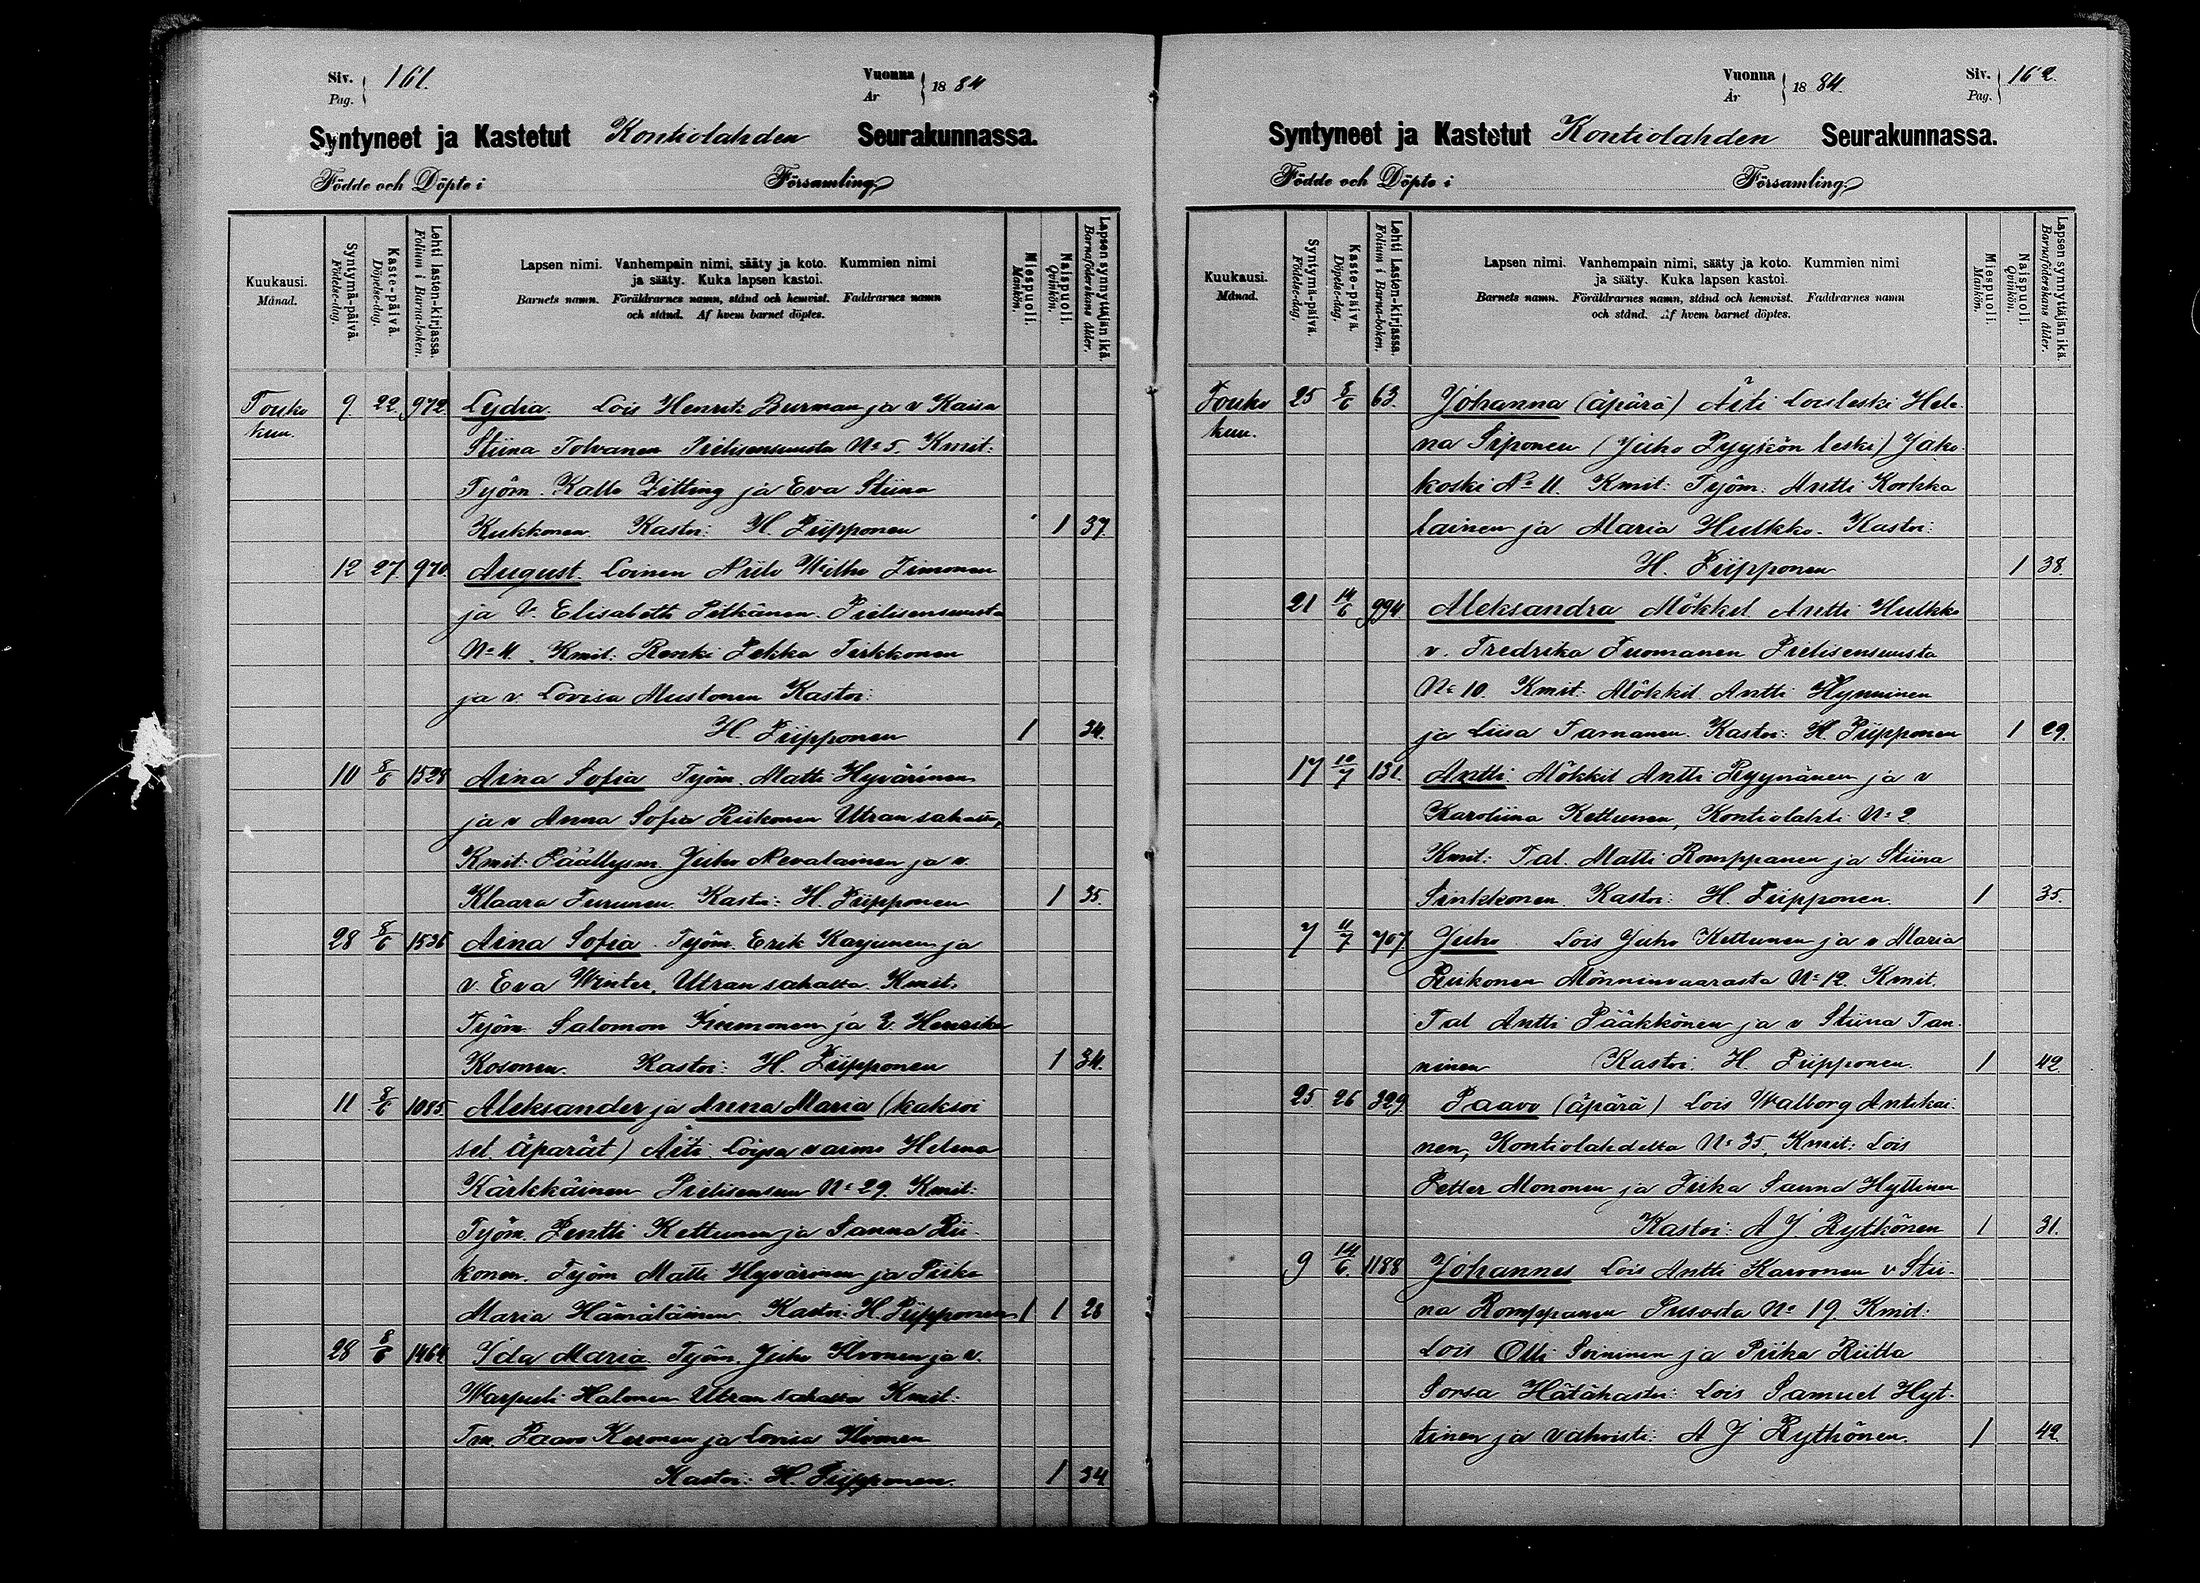 Siv. Pag. 161.
Vuonna År 1884
Syntyneet ja Kastetut Kontiolahden Seurakunnassa.
Födde och Döpte i Församling
Kuukausi. Månad.
Syntymä-päivä. Födelse-dag.
Kaste-päivä. Döpelse-dag.
Lehti lasten-kirjassa. Folium i Barna-boken.
Lapsen nimi. Vanhempain nimi, sääty ja koto. Kummien nimi
ja sääty. Kuka lapsen kastoi.
Barnets namn. Föräldrarnes namn, stånd och hemvist. Faddrarnes namn
och stånd. Af hvem barnet döptes.
Miespuoli. Mankön.
Naispuoli. Qvinkön.
Lapsen synnyttäjän ikä. Barnaföderskans ålder.
Touko 9. 22. 972. Lydia. Lois Henrik Burman ja v Kaisa
kuu. Stiina Tolvanen Pielisensuusta No 5. Kmit:
Työm. Kalle Zitting ja Eva Stiina
Kukkonen Kastoi: H. Piipponen 1 37.
12 27 970. August Loinen Niilo Wilho Timonen
ja v. Elisabeth Pitkänen. Pielisensuusta
No 11. Kmit: Renki Pekka Tirkkonen
ja v. Lovisa Mustonen Kastoi:
H. Piipponen 1 34.
10 8/6 1528 Aina Sofia Työm. Matti Hyvärinen
ja v Anna Sofia Riikonen Utran sahalta,
Kmit: Päällysm. Juho Nevalainen ja v.
Klaara Turunen. Kastoi: H. Piipponen 1 35.
28 8/6 1536 Aina Sofia. Työm. Erik Karjunen ja
v. Eva Winter, Utran sahalta. Kmit.
Työm. Salomon ja v. Henrika
Kosonen. Kastoi: H. Piipponen 1 34.
11 8/6 1085. Aleksander ja Anna Maria (kaksoi
set. Äpärät) Äiti. Löysä vaimo Helena
Kärkkäinen Pielisensuu No 29. Kmit:
Työm. Pentti Kettunen ja Sanna Rii-
konen. Työm Matti Hyvärinen ja Piika
Maria Hämäläinen Kastoi: H. Piipponen 1 1 28
28 8/6 1464 Ida Maria Työm. Juho Ilvonen ja v.
Warpuli Halonen Utran sahalta Kmit:
Tm. Paavo Keronen ja Lovisa Ilvonen
Kastoi: H. Piipponen. 1 34
Vuonna År 1884.
Siv. Pag. 162.
Syntyneet ja Kastetut Kontiolahden Seurakunnassa.
Födde och Döpte i Församling.
Kuukausi. Månad.
Syntymä-päivä. Födelse-dag.
Kaste-päivä. Döpelse-dag.
Lehti lasten-kirjassa. Folium i Barna-boken.
Lapsen nimi. Vanhempain nimi, sääty ja koto. Kummien nimi
ja sääty. Kuka lapsen kastoi.
Barnets namn. Föräldrarnes namn, stånd och hemvist. Faddrarnes namn
och stånd. Af hvem barnet döptes.
Miespuoli. Mankön.
Naispuoli. Qvinkön.
Lapsen synnyttäjän ikä. Barnaföderskans ålder.
Touko 25 8/6 63. Johanna (äpärä) Äiti Loisleski Hele-
kuu. na Siponen (Juho Pyykön leski) Jako-
koski No 11. Kmit: Työm: Antti Korkka
lainen ja Maria Hulkko. Kastoi:
H. Piipponen 1 38.
21 14/6 994. Aleksandra Mökkil. Antti Hulkko
v. Fredrika Tuomanen Pielisensuusta
No 10. Kmit: Mökkil. Antti Hynninen
ja Liisa Tamanen. Kastoi: H. Piipponen 1 29.
17 10/7 131. Antti. Mökkil Antti Ryynänen ja v
Karoliina Kettunen, Kontiolahti No 2.
Kmit: Tal. Matti Romppanen ja Stiina
Sinkkonen. Kastoi: H. Piipponen. 1 35.
7 11/7 707. Juho Lois Juho Kettunen ja v Maria
Riikonen Mönninvaarasta No 12. Kmit.
Tal Antti Pääkkönen ja v Stiina Tan-
ninen Kastoi. H. Piipponen. 1 42
25 26 329. Paavo (äpärä) Lois Walborg Antikai-
nen, Kontiolahdelta No 35, Kmit: Lois
Petter Mononen ja Piika Sanna Hyttinen
Kastoi: A J. Rytkönen 1 31.
9 14/6. 1188 Johannes Lois Antti Karvonen v Stii-
na Romppanen Pusosta No 19. Kmit:
Lois Olli Soininen ja Piika Riitta
Sorsa Hätäkastoi: Lois Samuel Hyt-
tinen ja vahvisti: A J Rytkönen. 1 42.